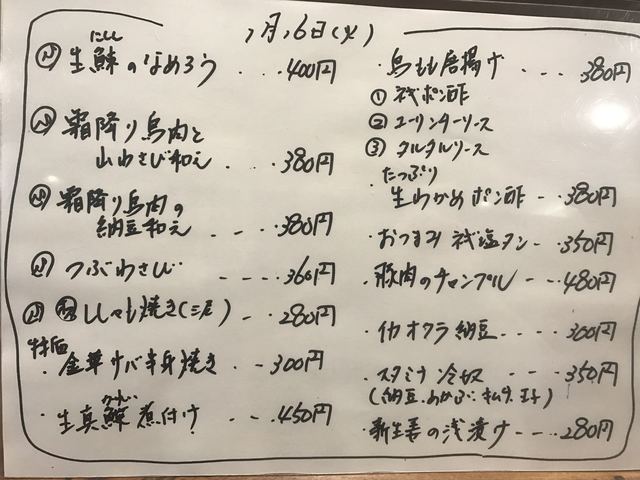 1月16日(火)
生鰊のなめろう ... 400円
にしん
霜降り鳥肉と
山わさび和え ... 380円
霜降り鳥肉の
納豆和え ... 380円
つぶわさび ---- 360円
ししゃも焼き(三尾) - 280円
特価
・金華サバ半身焼き -- 300円
・生真鰈煮付け --- 450円
かれい
・鳥もも唐揚げ --- 380円
① ネギポン酢
② ユーリンチーソース
③ タルタルソース
・たっぷり
生わかめポン酢 -- 380円
・おつまみネギ塩タン -- 350円
・豚肉のチャンプル -- 480円
・イカオクラ納豆 ---- 300円
・スタミナ冷奴 ---- 350円
(納豆、めかぶ、キムチ、玉子)
・新生姜の浅漬け --- 280円